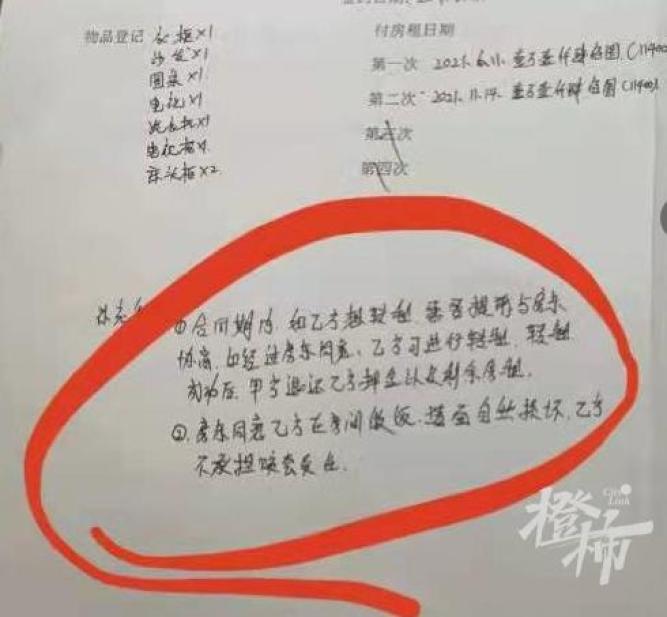 物品登记 衣柜×1
沙发×1
圆桌×1
电视×1
洗衣机×1
电视柜×1
床头柜×2
付房租日期
第一次 2021.6.11. 壹万壹仟肆佰圆(11400
第二次 2021.11.14. 壹万壹仟肆佰圆(11400)
第三次
第四次
补充
①合同期内,如乙方想转租,需要提前与房东
协商,如经过房东同意,乙方可进行转租,转租
成功后,甲方退还乙方押金以及剩余房租.
②.房东同意乙方在房间做饭,墙面自然损坏,乙方
不承担赔偿责任.
City
Link
橙柿